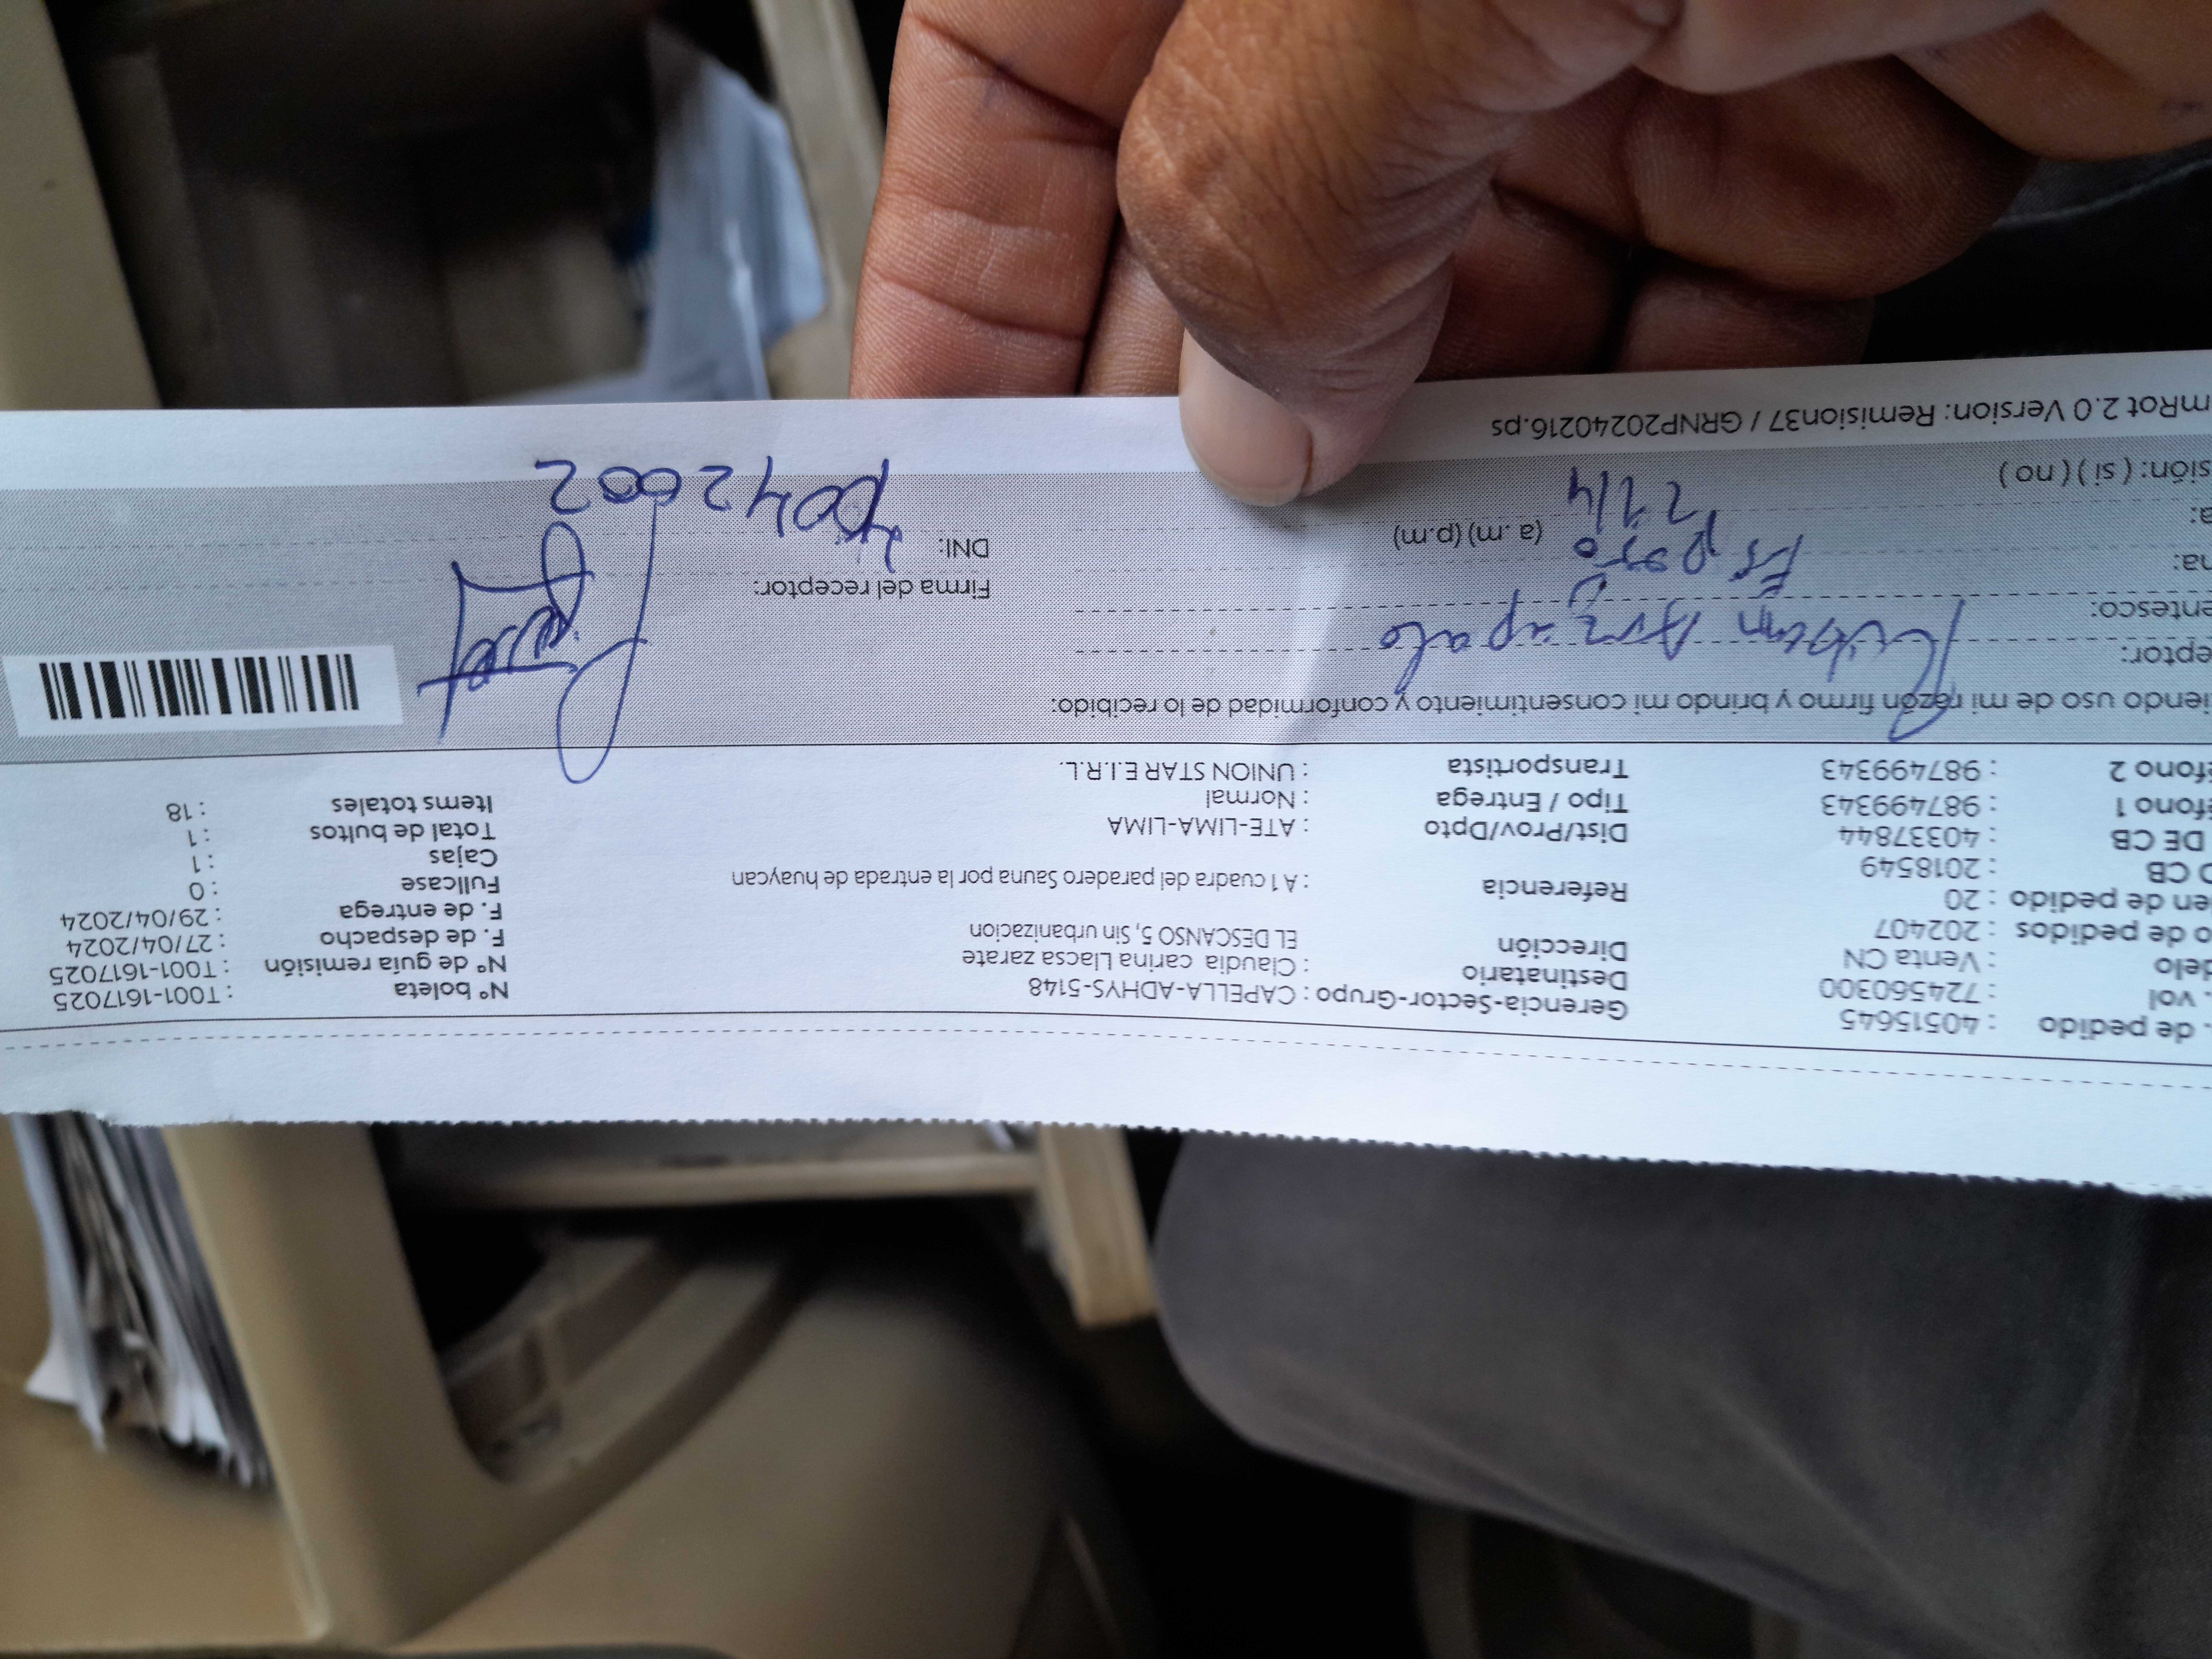 . de pedido : 40515645
. vol : 724560300
delo : Venta CN
o de pedidos : 202407
en de pedido : 20
O CB : 2018549
DE CB : 40337844
éfono 1 : 987499343
éfono 2 : 987499343
Gerencia-Sector-Grupo : CAPELLA-ADHYS-5148
Destinatario : Claudia carina Llacsa zarate
Dirección EL DESCANSO 5, Sin urbanizacion
Referencia : A 1 cuadra del paradero Sauna por la entrada de huaycan
Dist/Prov/Dpto : ATE-LIMA-LIMA
Tipo / Entrega : Normal
Transportista : UNION STAR E.I.R.L.
Nº boleta : T001-1617025
Nº de guía remisión : T001-1617025
F. de despacho : 27/04/2024
F. de entrega : 29/04/2024
Fullcase : 0
Cajas : 1
Total de bultos : 1
Items totales : 18
iendo uso de mi razón firmo y brindo mi consentimiento y conformidad de lo recibido:
eptor:
entesco: Esposo
na:
a: (a .m) (p.m)
sión: ( si ) ( no )
Firma del receptor:
DNI:
mRot 2.0 Version: Remision37 / GRNP20240216.ps